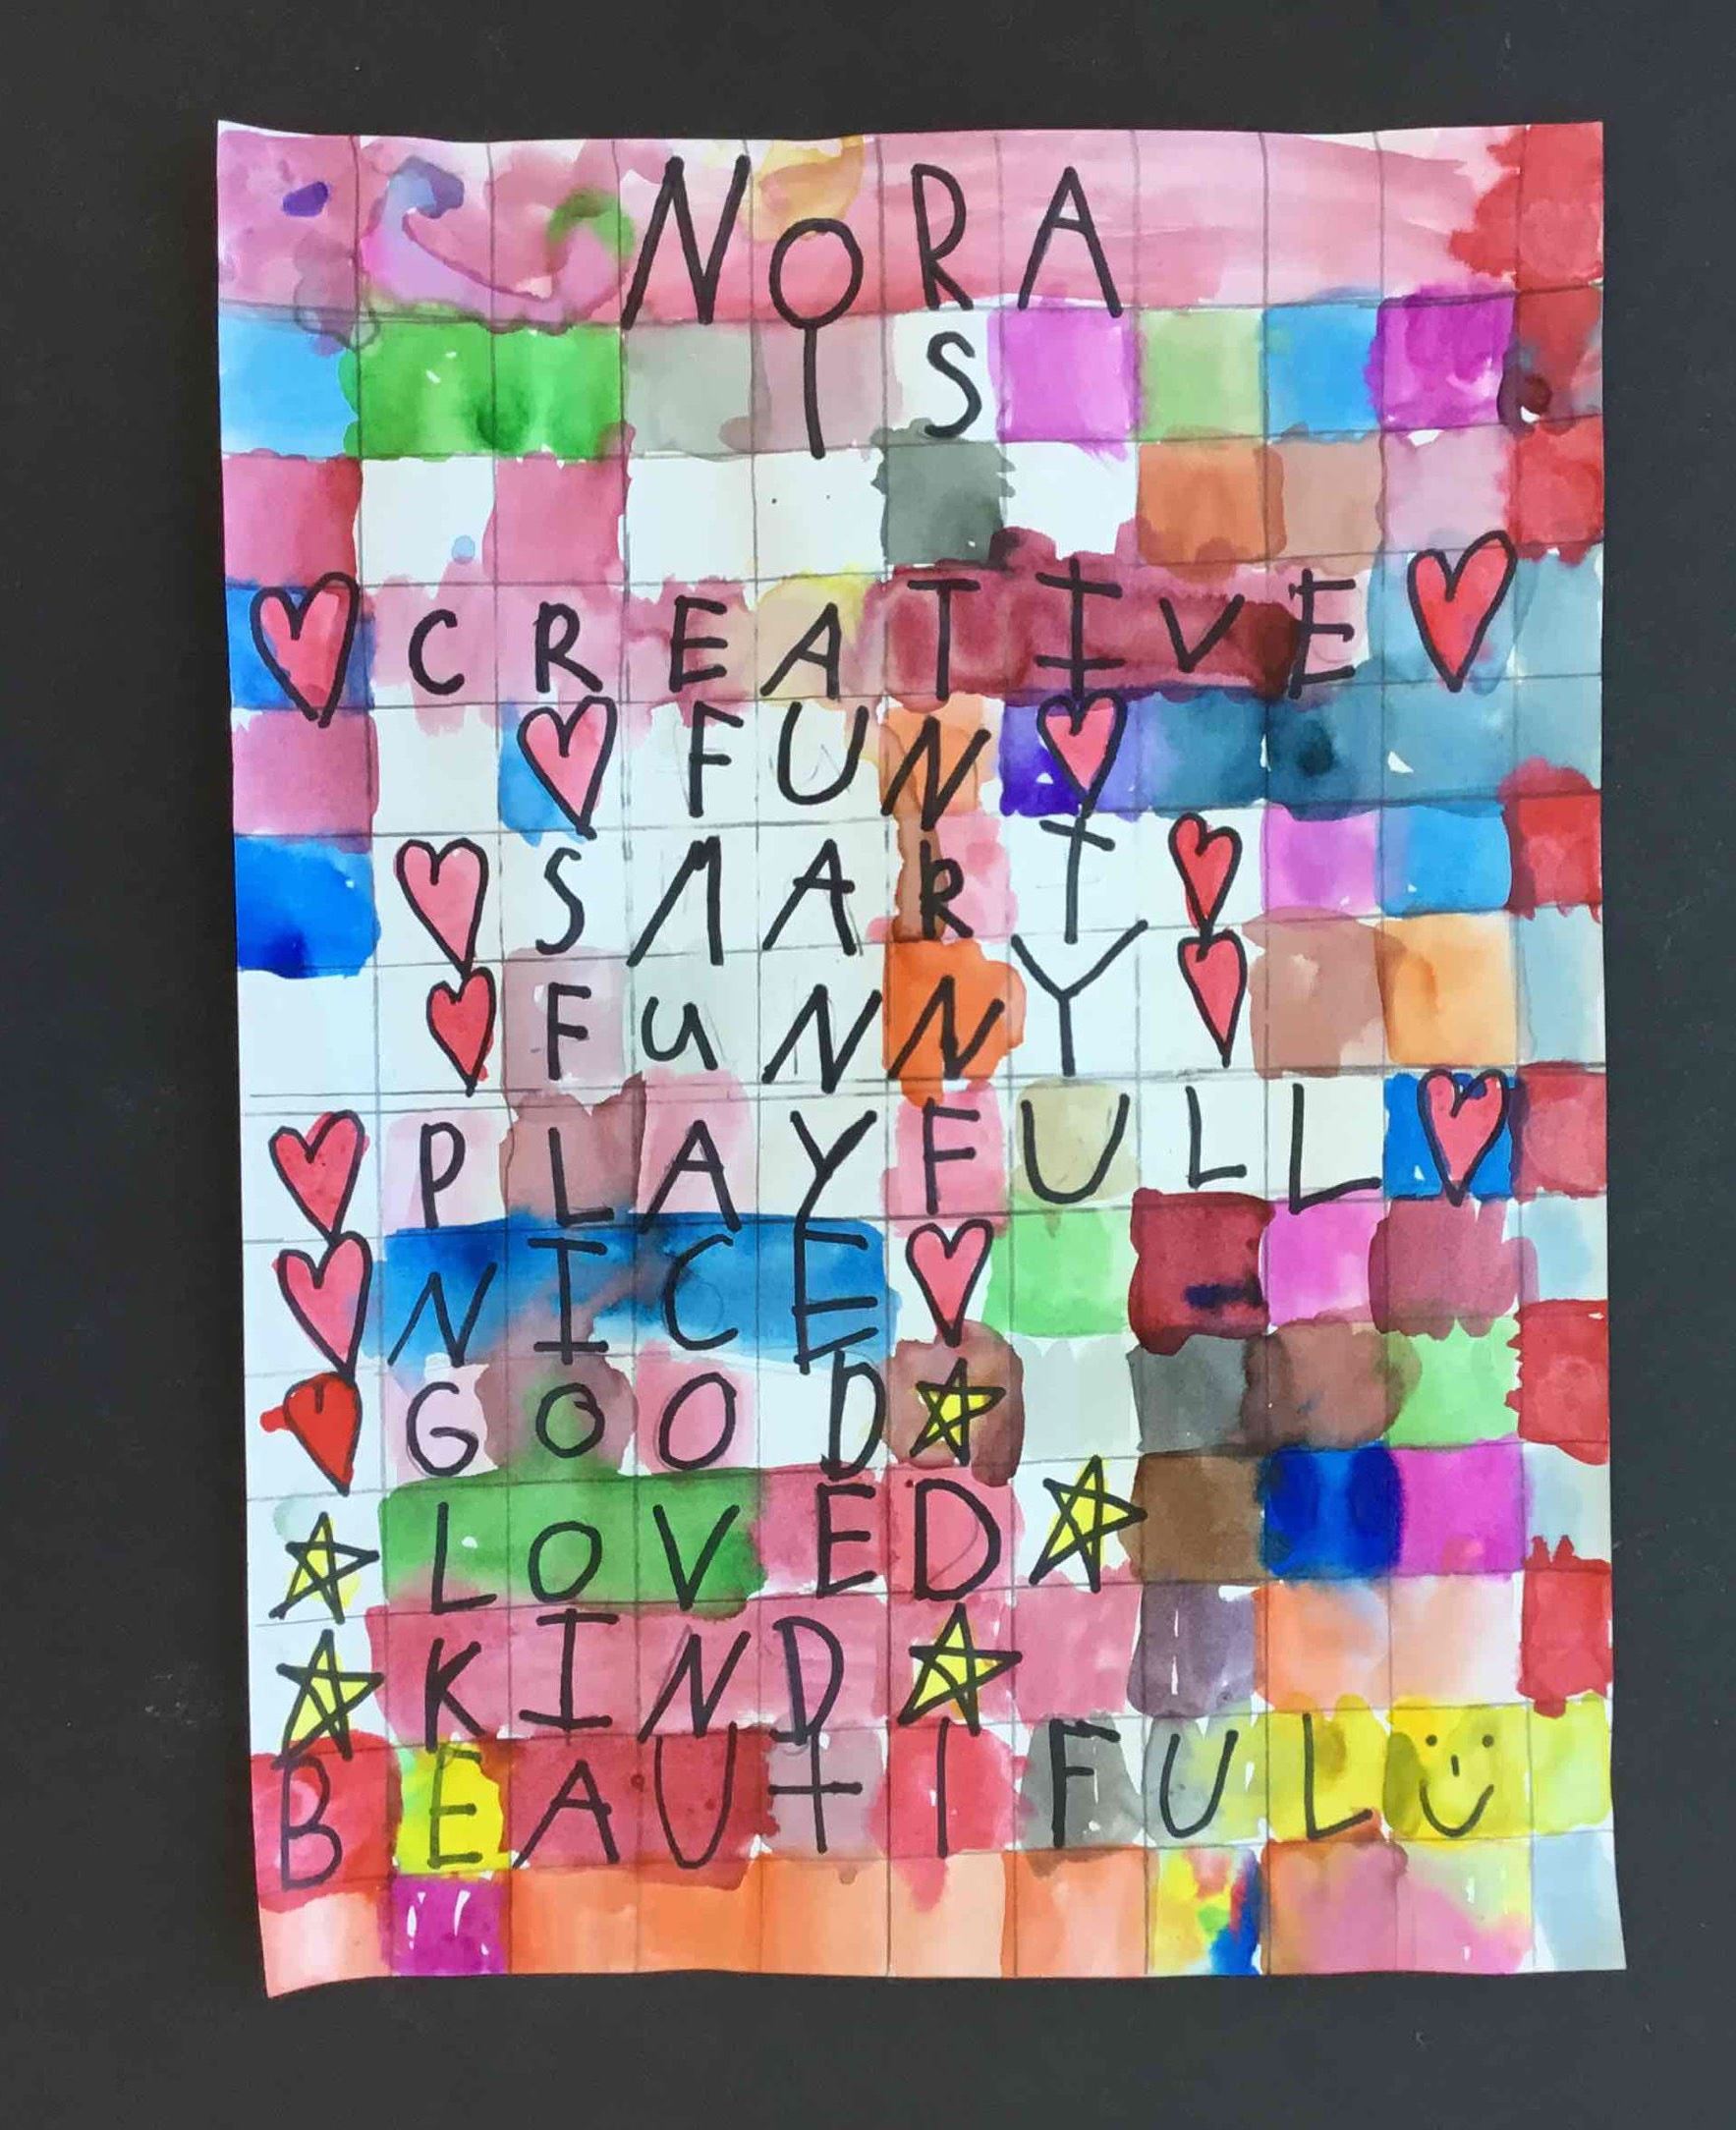 NORA
IS
CREATIVE
FUN
SMART
FUNNY
PLAYFULL
NICE
GOOD
LOVED
KIND
BEAUTIFUL